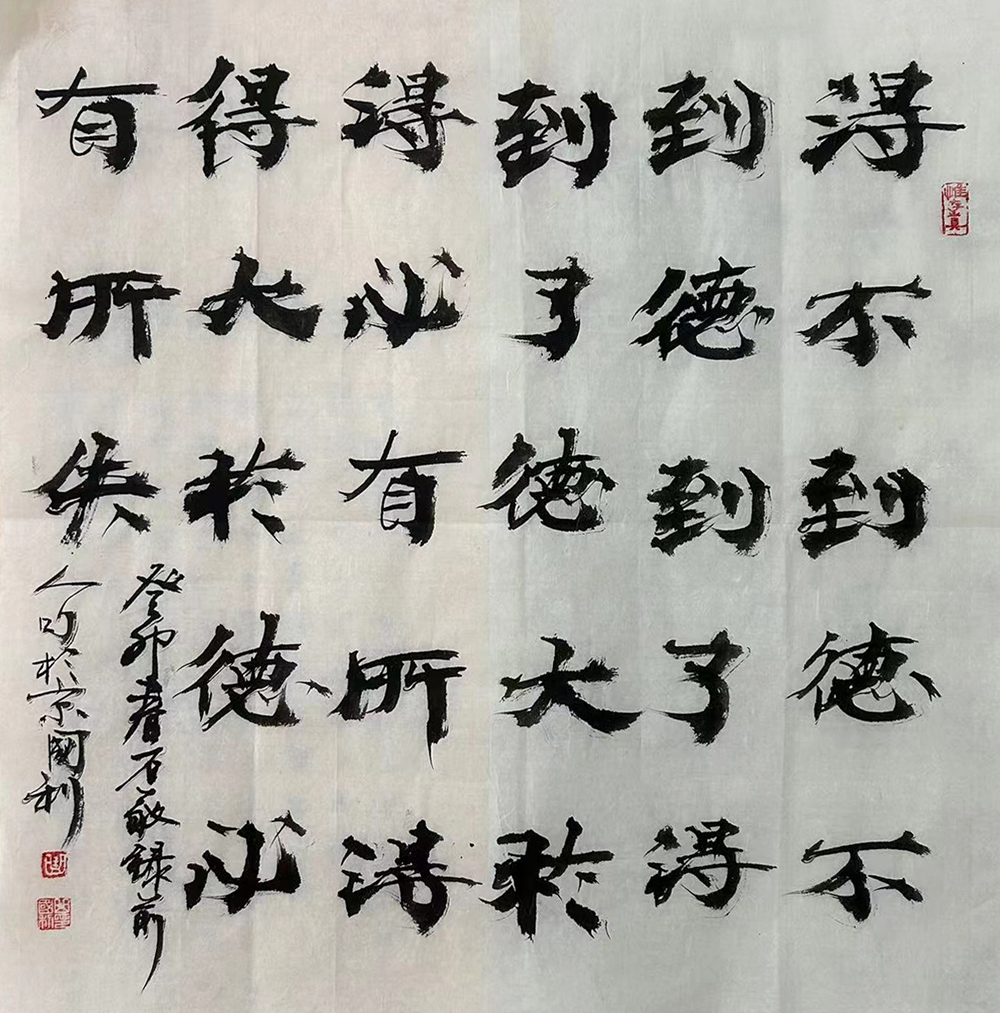 得不到德不
到德到了得
到了德大於
得必有所得
得大於德必
有所失
癸卯春石敬錄前
人句於京國利